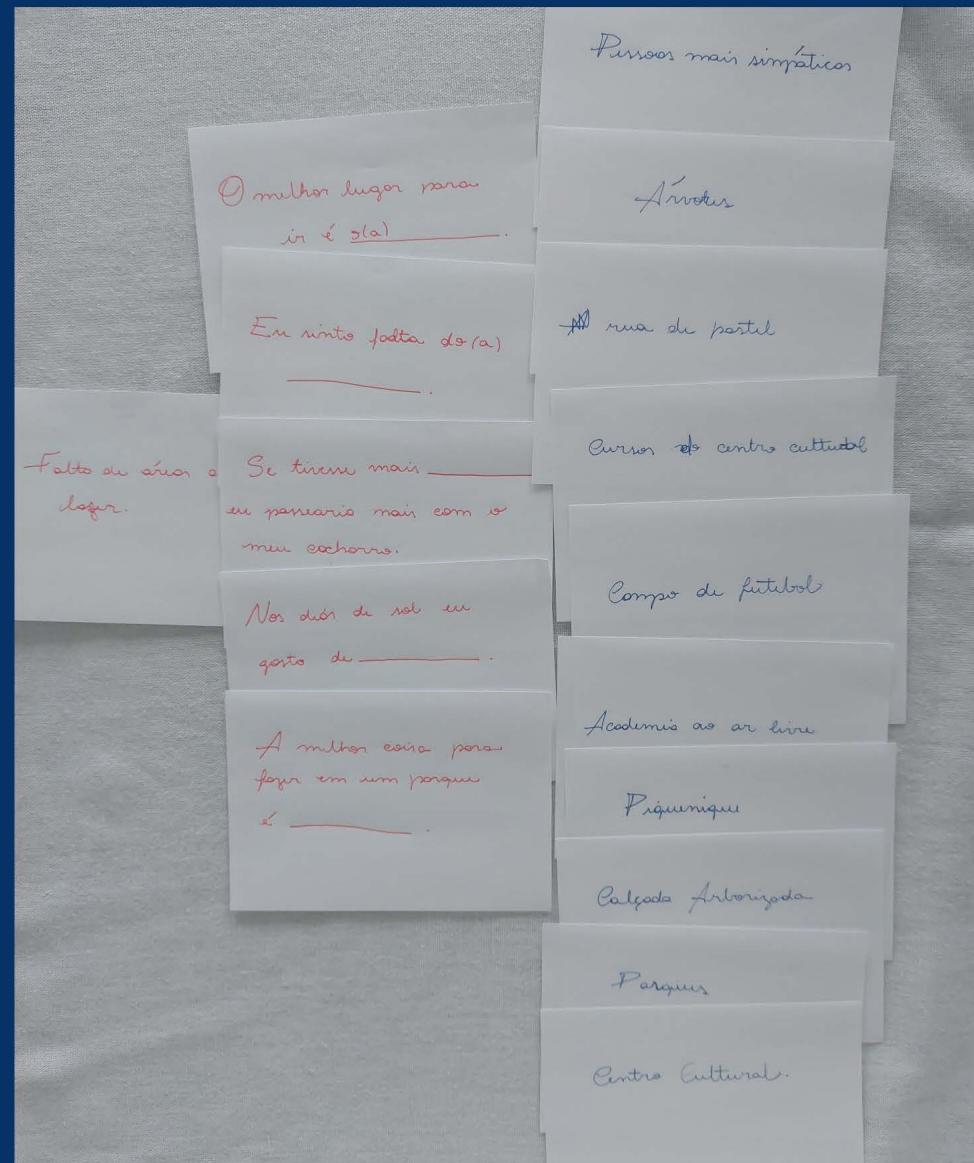 Falta de áreas e
lazer.
O melhor lugar para
ir é o(a) ________.
Eu sinto falta do(a)
________.
Se tivesse mais ________
eu passearia mais com o
meu cachorro.
Nos dias de sol eu
gosto de ________.
A melhor coisa para
fazer em um parque
é ________.
Pessoas mais simpáticas
Árvores
rua de pastel
Cursos centro cultural
Campo de futebol
Academia ao ar livre
Piquenique
Calçada Arborizada
Parques
Centro Cultural.